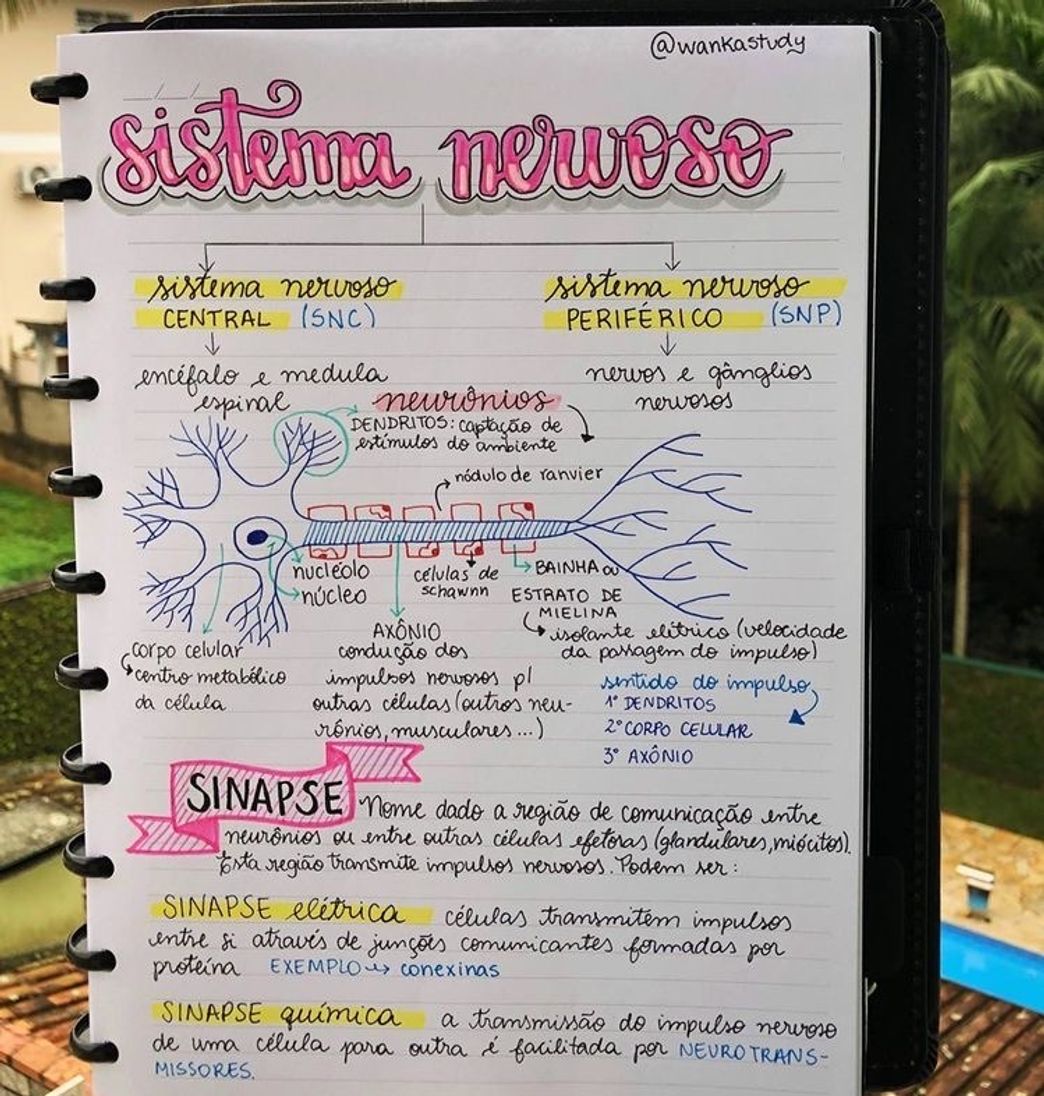 @wankastudy
sistema nervoso
sistema nervoso
CENTRAL (SNC)
sistema nervoso
PERIFÉRICO (SNP)
encéfalo e medula
espinal
nervos e gânglios
nervosos
neurônios
DENDRITOS: captação de
estímulos do ambiente
nódulo de ranvier
nucléolo
núcleo
células de
schawnn
BAINHA ou
ESTRATO DE
MIELINA
isolante elétrico (velocidade
da passagem do impulso)
corpo celular
centro metabólico
da célula
AXÔNIO
condução dos
impulsos nervosos p/
outras células (outros neu-
rônios, musculares...)
sentido do impulso
1° DENDRITOS
2° CORPO CELULAR
3° AXÔNIO
SINAPSE
Nome dado a região de comunicação entre
neurônios ou entre outras células efetoras (glandulares, miócitos).
Esta região transmite impulsos nervosos. Podem ser:
SINAPSE elétrica células transmitem impulsos
entre si através de junções comunicantes formadas por
proteína EXEMPLO → conexinas
SINAPSE química a transmissão do impulso nervoso
de uma célula para outra é facilitada por NEUROTRANS-
MISSORES.